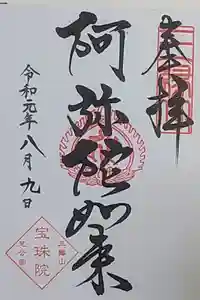 奉拝
阿弥陀如来
令和元年八月九日
三縁山
宝珠院
芝公園